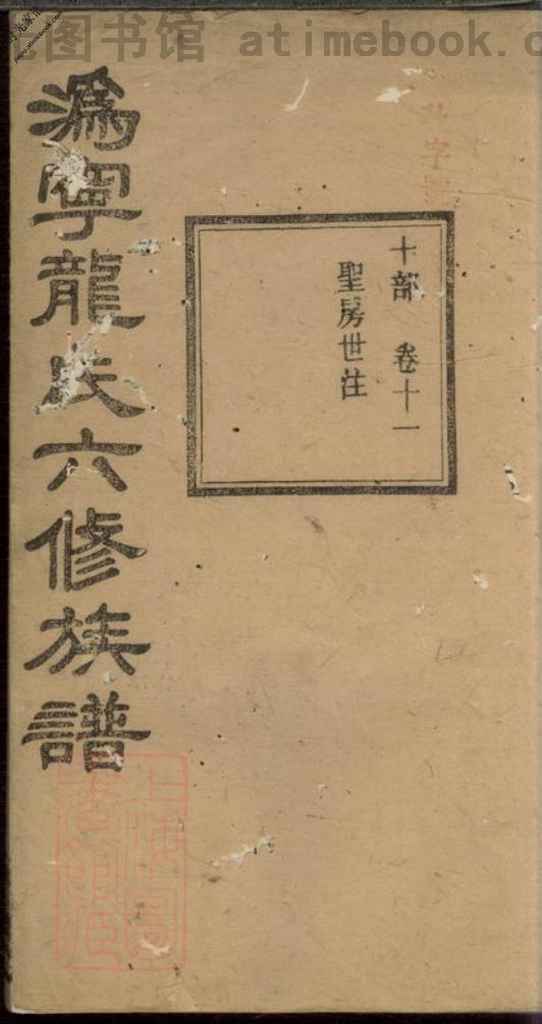 图书馆 atimebook.c
字
十部 卷十一
聖房世注
潙寧龍氏六修族譜